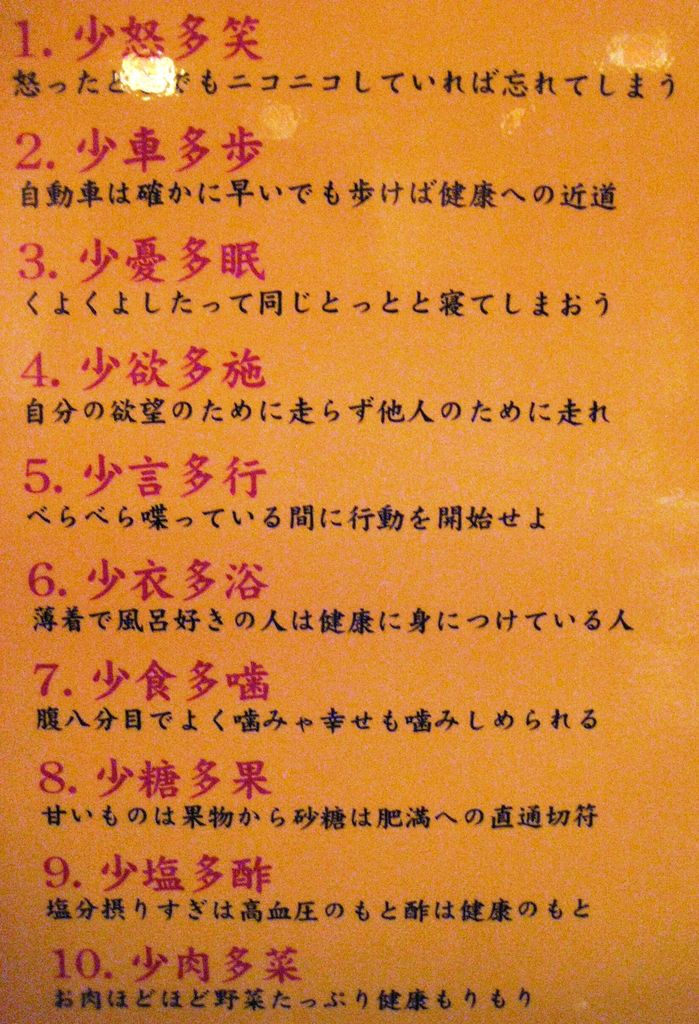 1. 少怒多笑
怒ったとででもニコニコしていれば忘れてしまう
2. 少車多歩
自動車は確かに早いでも歩けば健康への近道
3. 少憂多眠
くよくよしたって同じとっとと寝てしまおう
4. 少欲多施
自分の欲望のために走らず他人のために走れ
5. 少言多行
べらべら喋っている間に行動を開始せよ
6. 少衣多浴
薄着で風呂好きの人は健康に身につけている人
7. 少食多噛
腹八分目でよく噛みゃ幸せも噛みしめられる
8. 少糖多果
甘いものは果物から砂糖は肥満への直通切符
9. 少塩多酢
塩分摂りすぎは高血圧のもと酢は健康のもと
10. 少肉多菜
お肉ほどほど野菜たっぷり健康もりもり